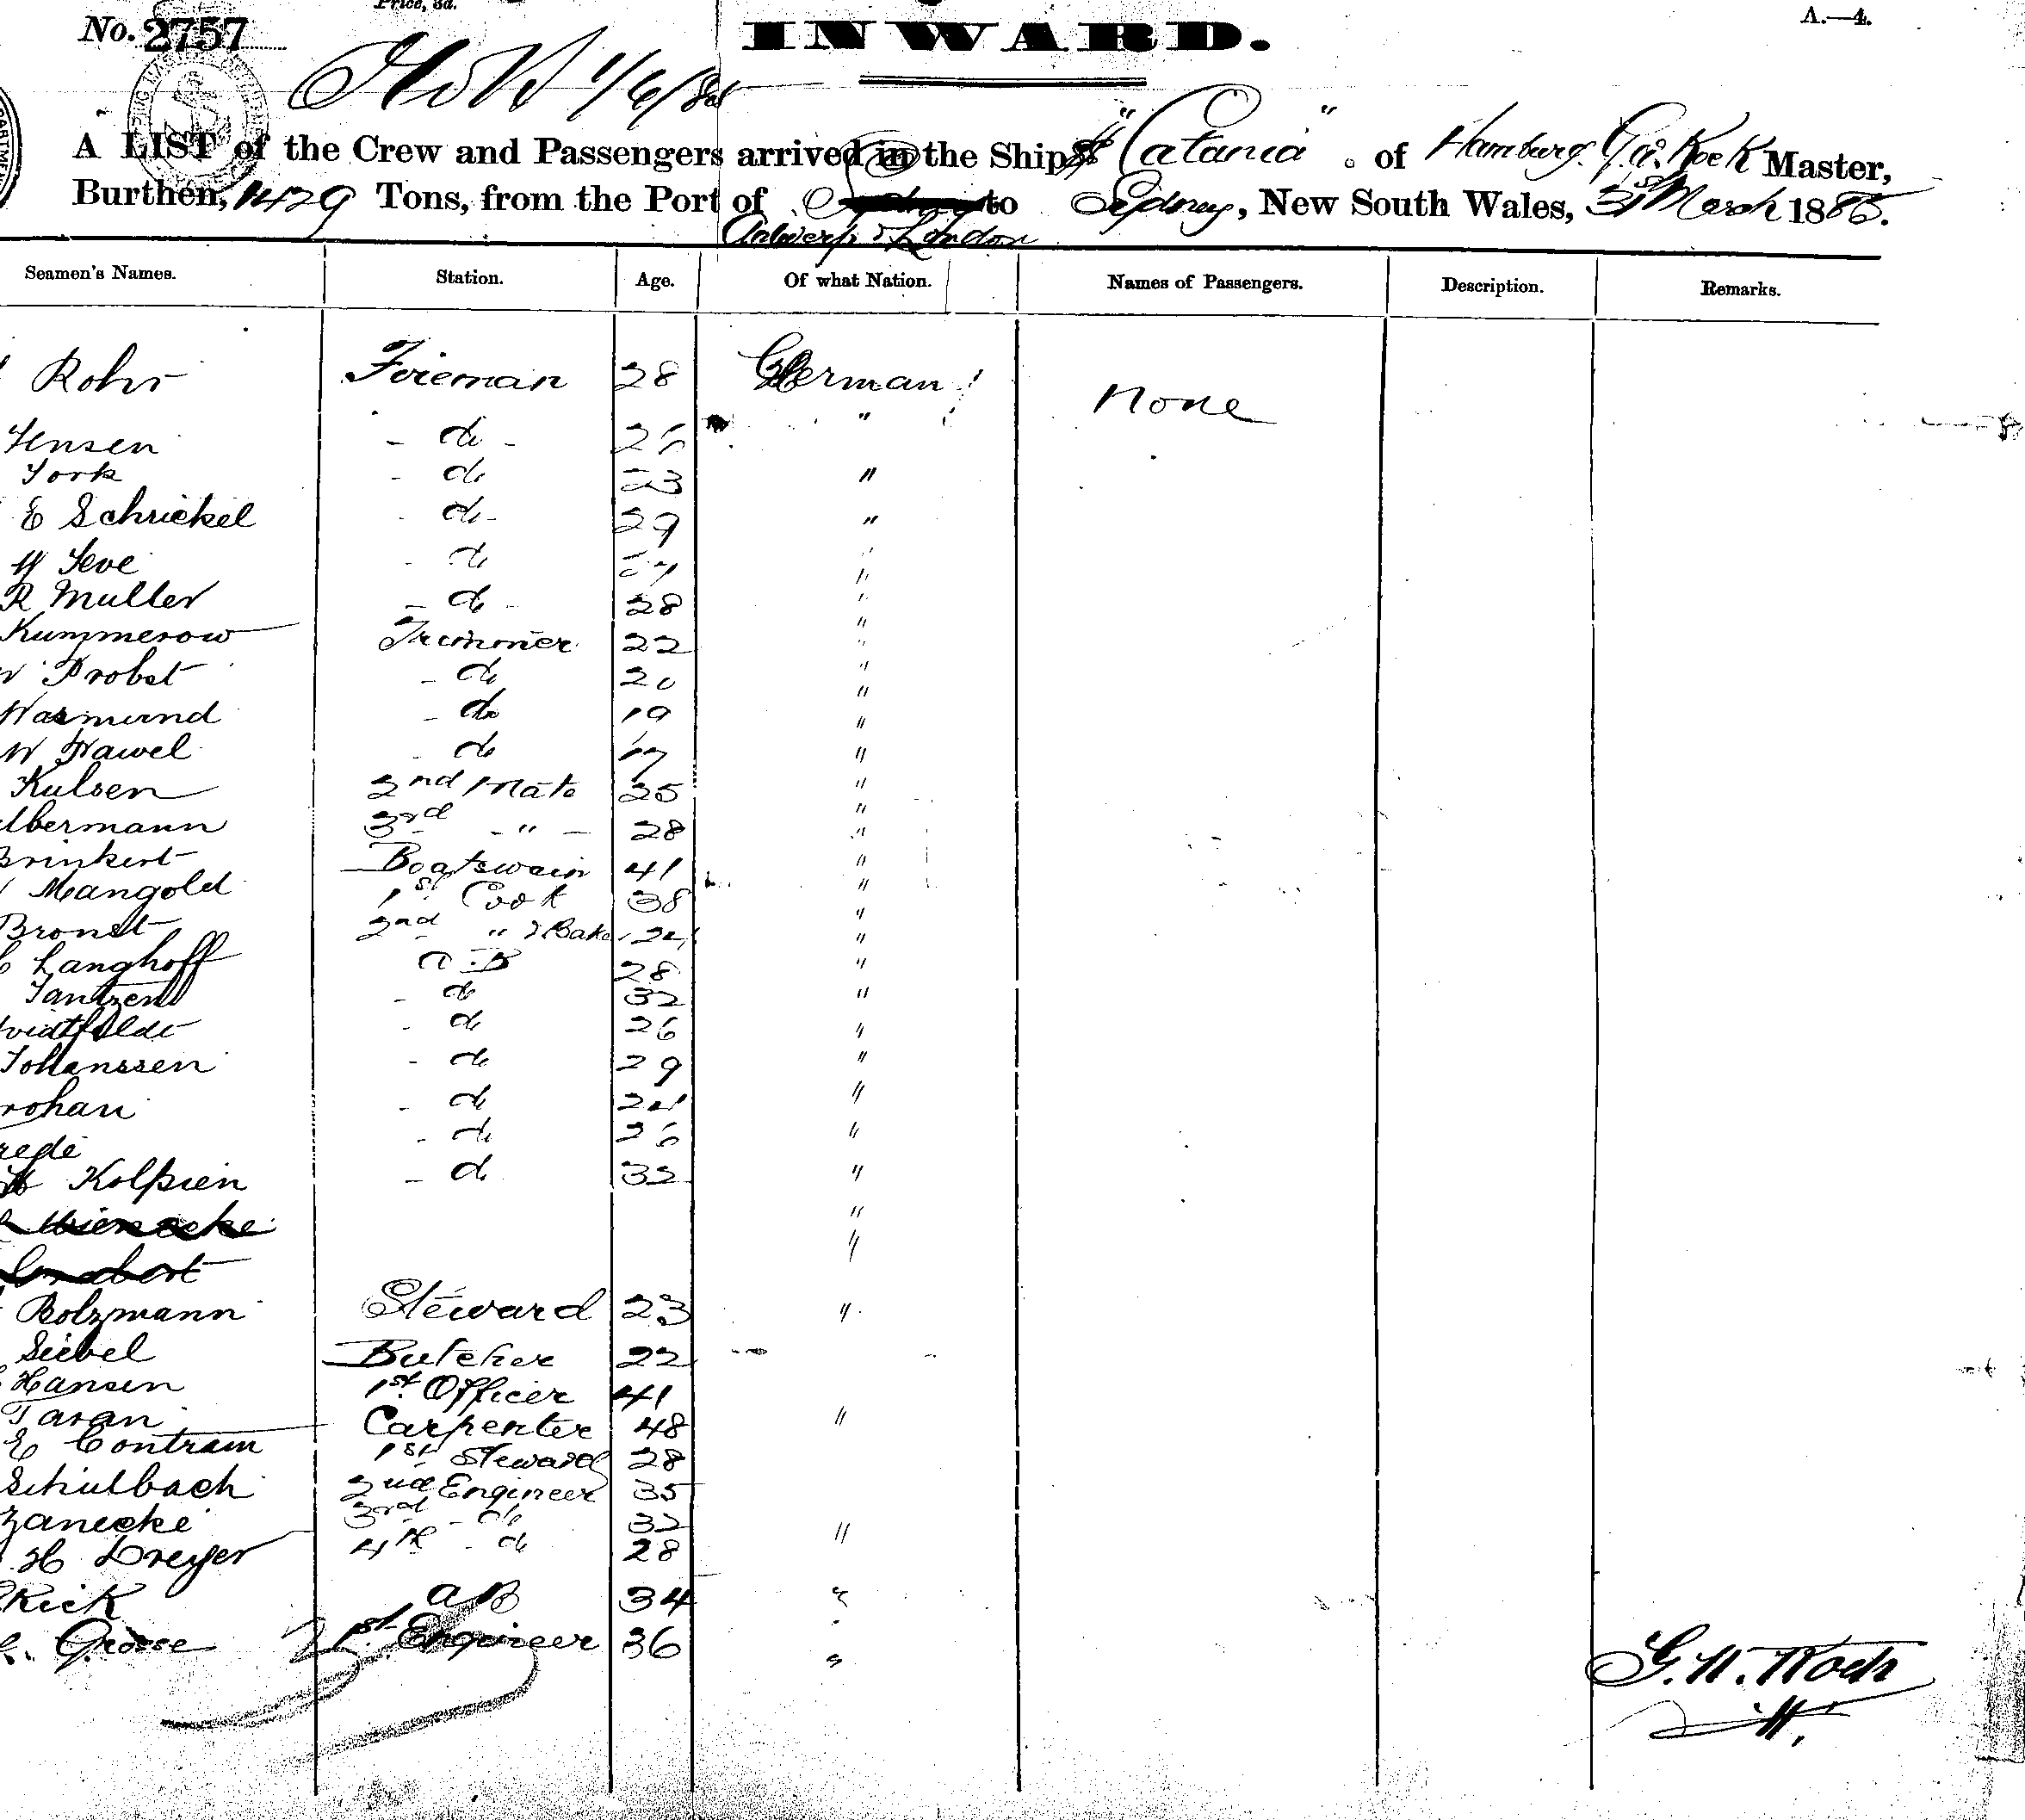 Price, 3d.
No. 2757
INWARD.
A.—4.
A LIST of the Crew and Passengers arrived in the Ship "Catania" of Hamburg. Master,
Burthen, 1429 Tons, from the Port of to Sydney, New South Wales, 31st March 1885.
Antwerp & London
Seamen's Names. Station. Age. Of what Nation. Names of Passengers. Description. Remarks.
Rohr Fireman 28 German None
Jensen - do - 26 "
York - do 23 "
E Schrickel - do - 29 "
Jeve - do "
R Muller - do - 28 "
Kummerow Trimmer 22 "
Probst - do 20 "
Wasmund - do 19 "
W Pawel - do 17 "
Kulsen 2nd Mate 25 "
3rd - " - 28 "
Brinkert Boatswain 41 "
Mangold 1st Cook 38 "
2nd " & Bake 24 "
Langhoff A.B 28 "
Jantzen - do 32 "
- do 26 "
Johanssen - do 29 "
- do 24 "
- do 26 "
Kolpien - do 32 "
"
"
Bolzmann Steward 23 "
Siebel Butcher 22
Hansen 1st Officer 41
Taran Carpenter 48 "
E Contram 1st Steward 28
Schulbach 2nd Engineer 35
3rd - do 32 "
H Dreyer 4th - do 28
Rick AB 34 "
Grosse 1st Engineer 36 "
G. N. Koch